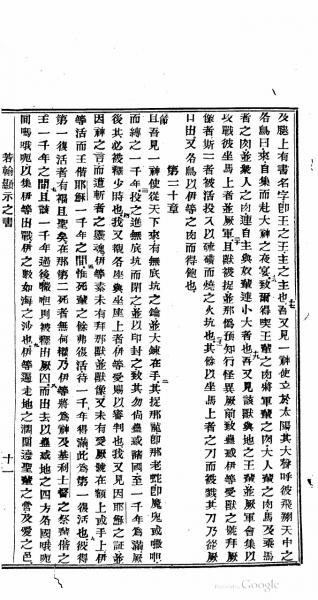 及髀上有書名字即王之王主之主也吾又見一神使立於太陽其大聲呼彼飛翔天中之
各鳥曰來自集而赴大神之夜宴致爾得喫王輩之肉將軍輩之肉大人輩之肉馬及乘馬
者之肉並衆人之肉連自主與奴輩連小大者也吾又見該獸與地之王輩並厥軍會集以
攻戰彼坐馬上者並厥軍且獸被捉並那僞預知行怪異厥前致蠱或伊等受獸之號拜厥
像者斯二者被活投入以硫磺而燒之火坑也其餘以坐馬上者之刀而被戮其刀乃從厥
口出又各鳥以伊等之肉而得飽也
第二十章
且吾見一神使從天下來有無底坑之鑰並大鍊在手其捉那龍即那老蛇即魔鬼或
而縛之一千年投之進無底坑而閉之並以印封之致其勿尚蠱或諸國至一千年爲滿厥
後其必被釋少時也我又觀各座與坐座上者伊等受賜以審判也我又見因耶穌之証並
因神之言而遭斬者之靈魂伊等素未有拜那獸並獸像又未有受厥號在額上或手上伊
等活而王偕耶穌一千年之間惟死輩之餘弗復活待一千年得滿此爲第一復活也彼得
第一復活者有福且聖矣在那第二死者無何權乃伊等將爲神及基利士督之祭輩偕之
王一千年之間且該一千年過後則被釋出厥囚而由去以蠱或地之四方各國
以集伊等出戰伊之數如海之沙也伊等遍走地之濶圍遶聖輩之營及愛之邑
若翰顯示之書
十一
Google